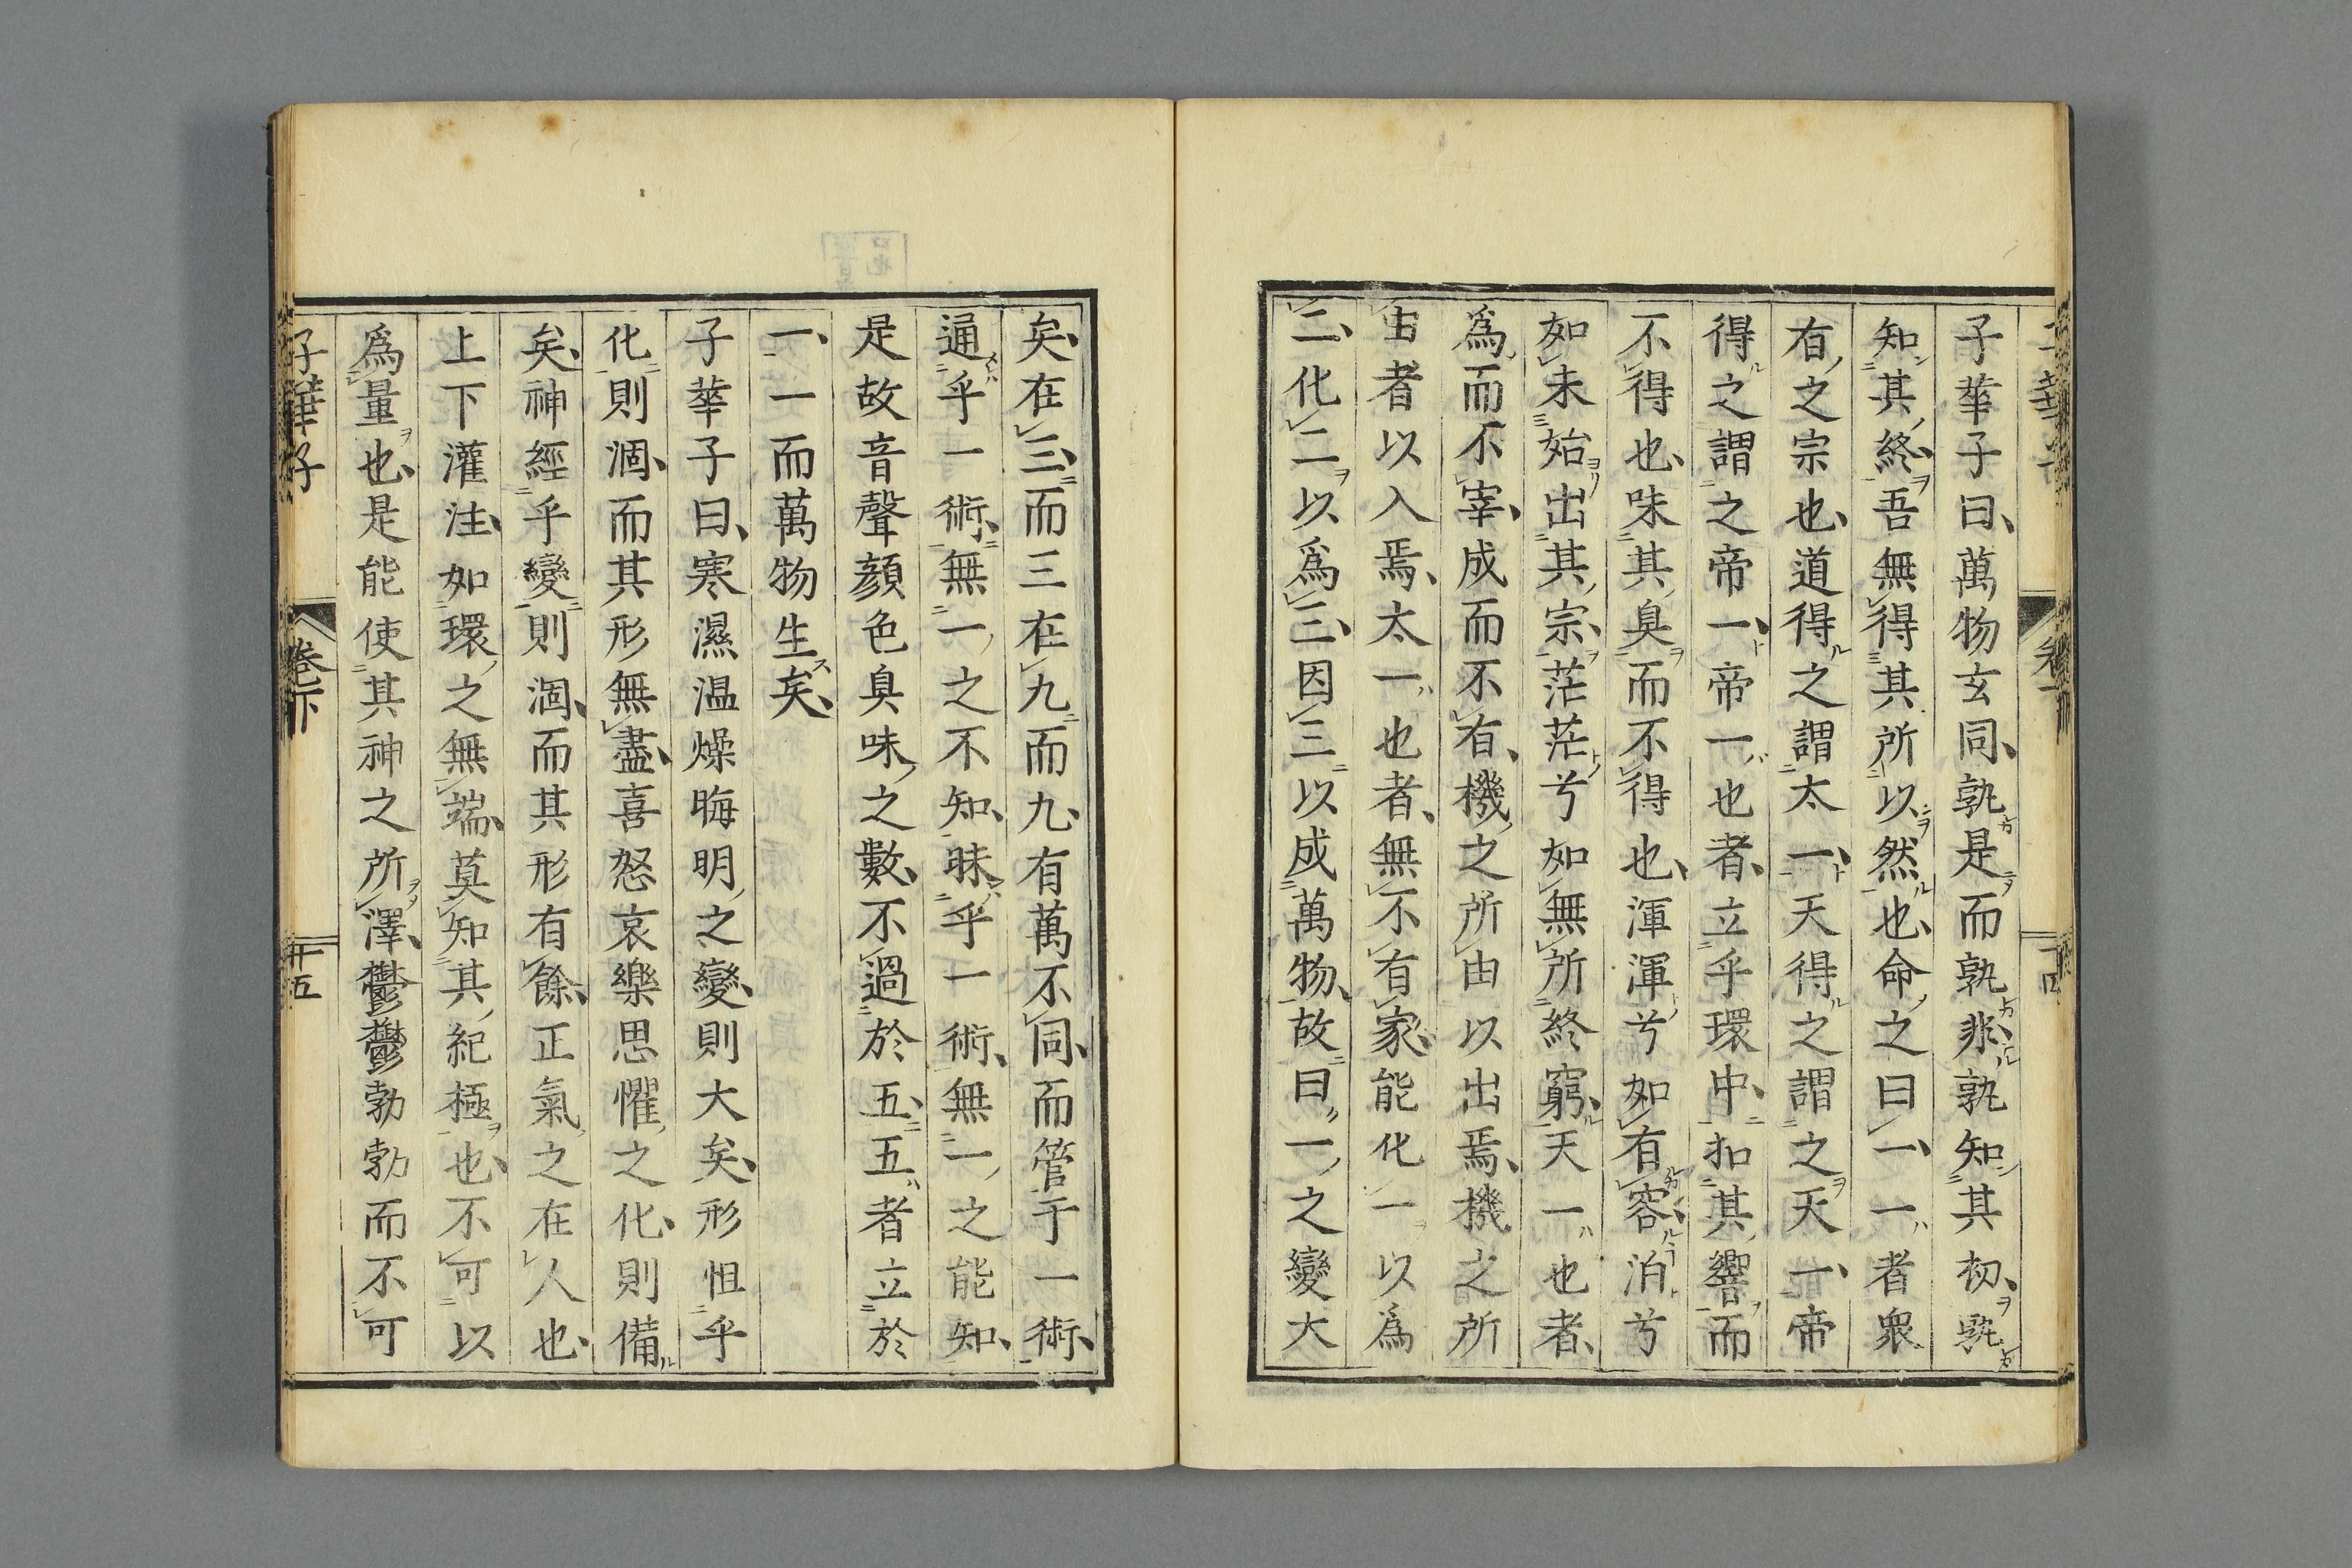 子華子曰萬物玄同孰是而孰非孰知其初孰
知其終吾無得其所以然也命之曰一一者衆
有之宗也道得之謂太一天得之謂之天一帝
得之謂之帝一帝一也者立乎環中扣其響而
不得也味其臭而不得也渾渾兮如有容泊兮
如未始出其宗茫茫兮如無所終窮天一也者
爲而不宰成而不有機之所由以出焉機之所
由者以入焉太一也者無不有家能化一以爲
二化二以爲三因三以成萬物故曰一之變大
矣在三而三在九而九有萬不同而管于一術
通乎一術無一之不知昧乎一術無一之能知
是故音聲顔色臭味之數不過於五五者立於
一一而萬物生矣
子華子曰寒濕温燥晦明之變則大矣形怛乎
化則涸而其形無盡喜怒哀樂思懼之化則備
矣神經乎變則涸而其形有餘正氣之在人也
上下灌注如環之無端莫知其紀極也不可以
爲量也是能使其神之所澤鬱鬱勃勃而不可
子華子
卷下
廿五